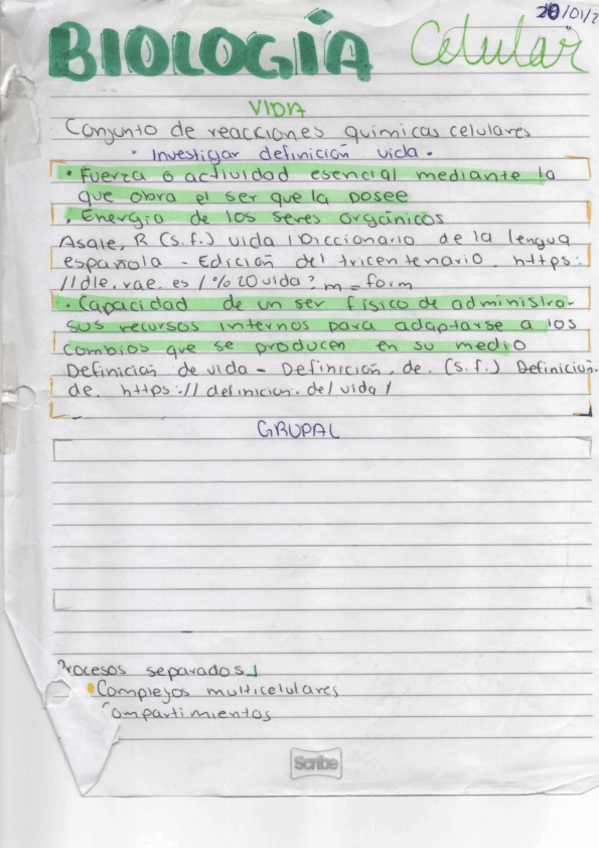 20/01/2
BIOLOGÍA Celular
VIDA
Conjunto de reacciones químicas celulares
• Investigar definición vida •
• Fuerza o actividad esencial mediante la
que obra el ser que la posee
• Energía de los seres orgánicos
Asale, R (s.f.) vida | Diccionario de la lengua
española - Edición del tricentenario. https:
//dle.rae.es/%20vida?m=form
• Capacidad de un ser físico de administrar
sus recursos internos para adaptarse a los
cambios que se producen en su medio
Definición de vida - Definición.de. (s.f.) Definición.
de. https://definicion.de/vida/
GRUPAL
Procesos separados
• Complejos multicelulares
Compartimientos
Scribe